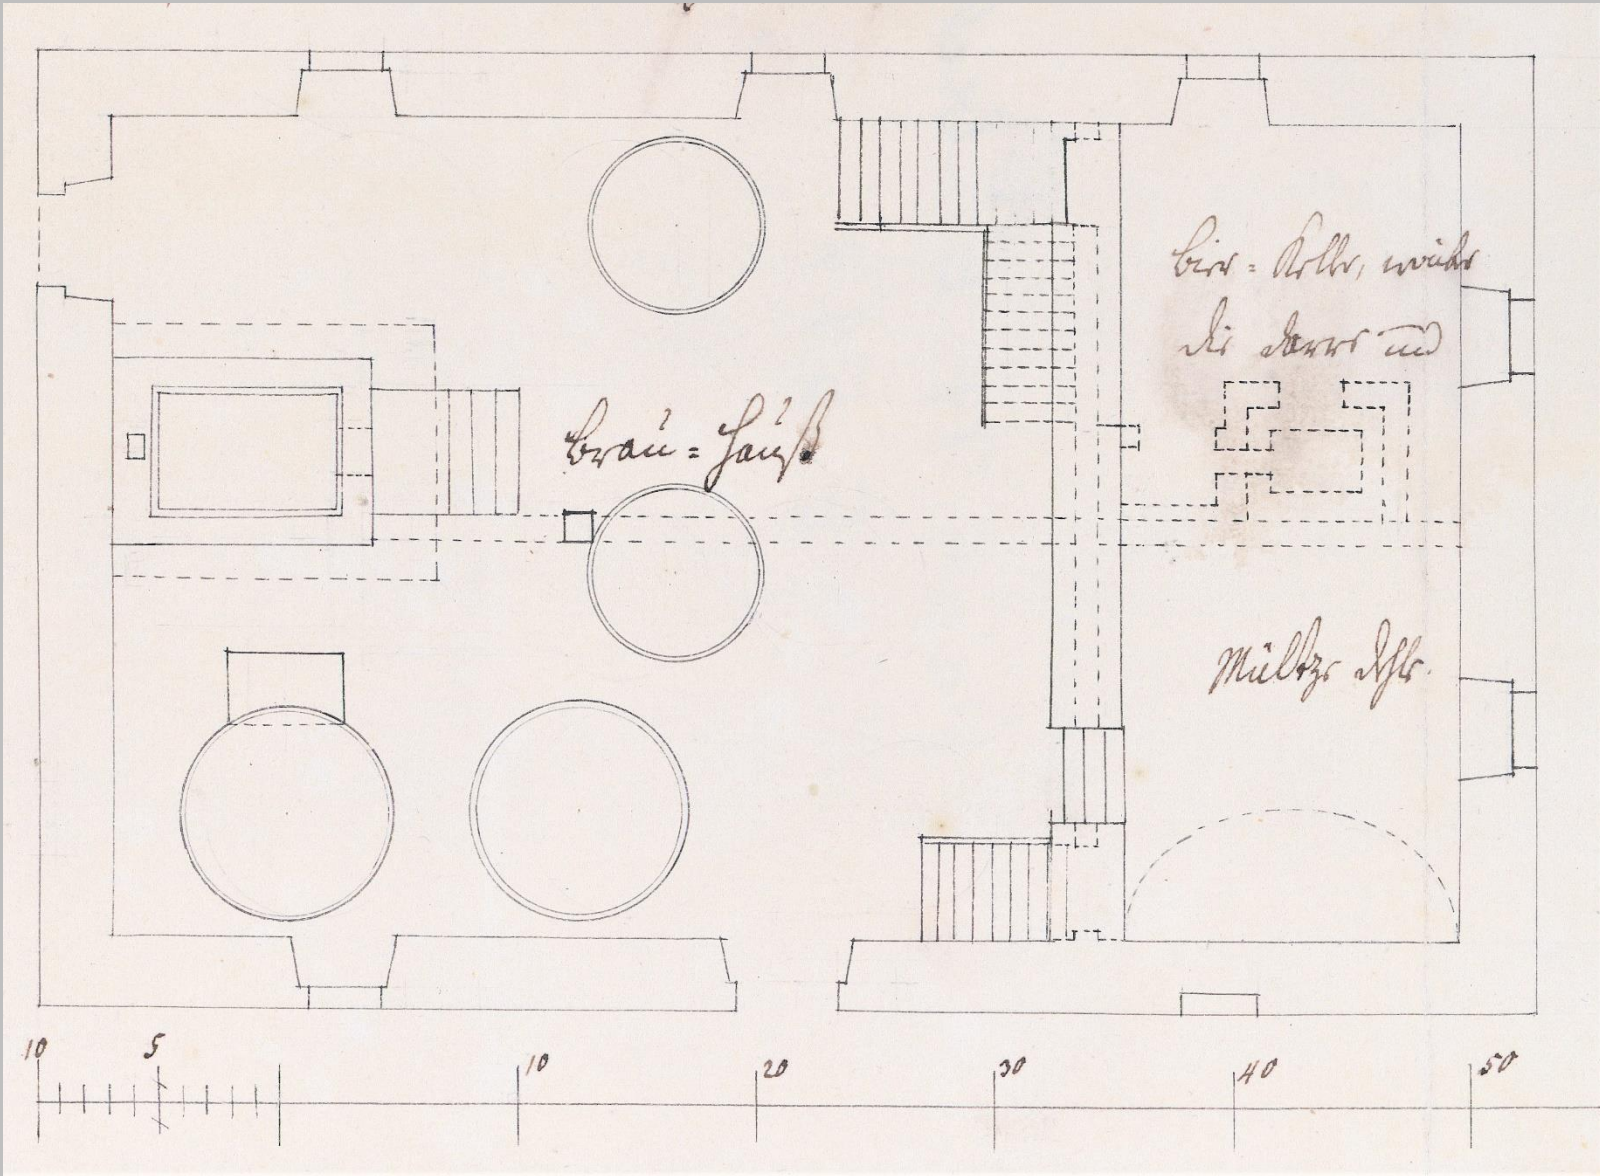 Bier = Keller, worüber
die darre und
Bräu = Hauß
Mültze dehle.
10 5 10 20 30 40 50